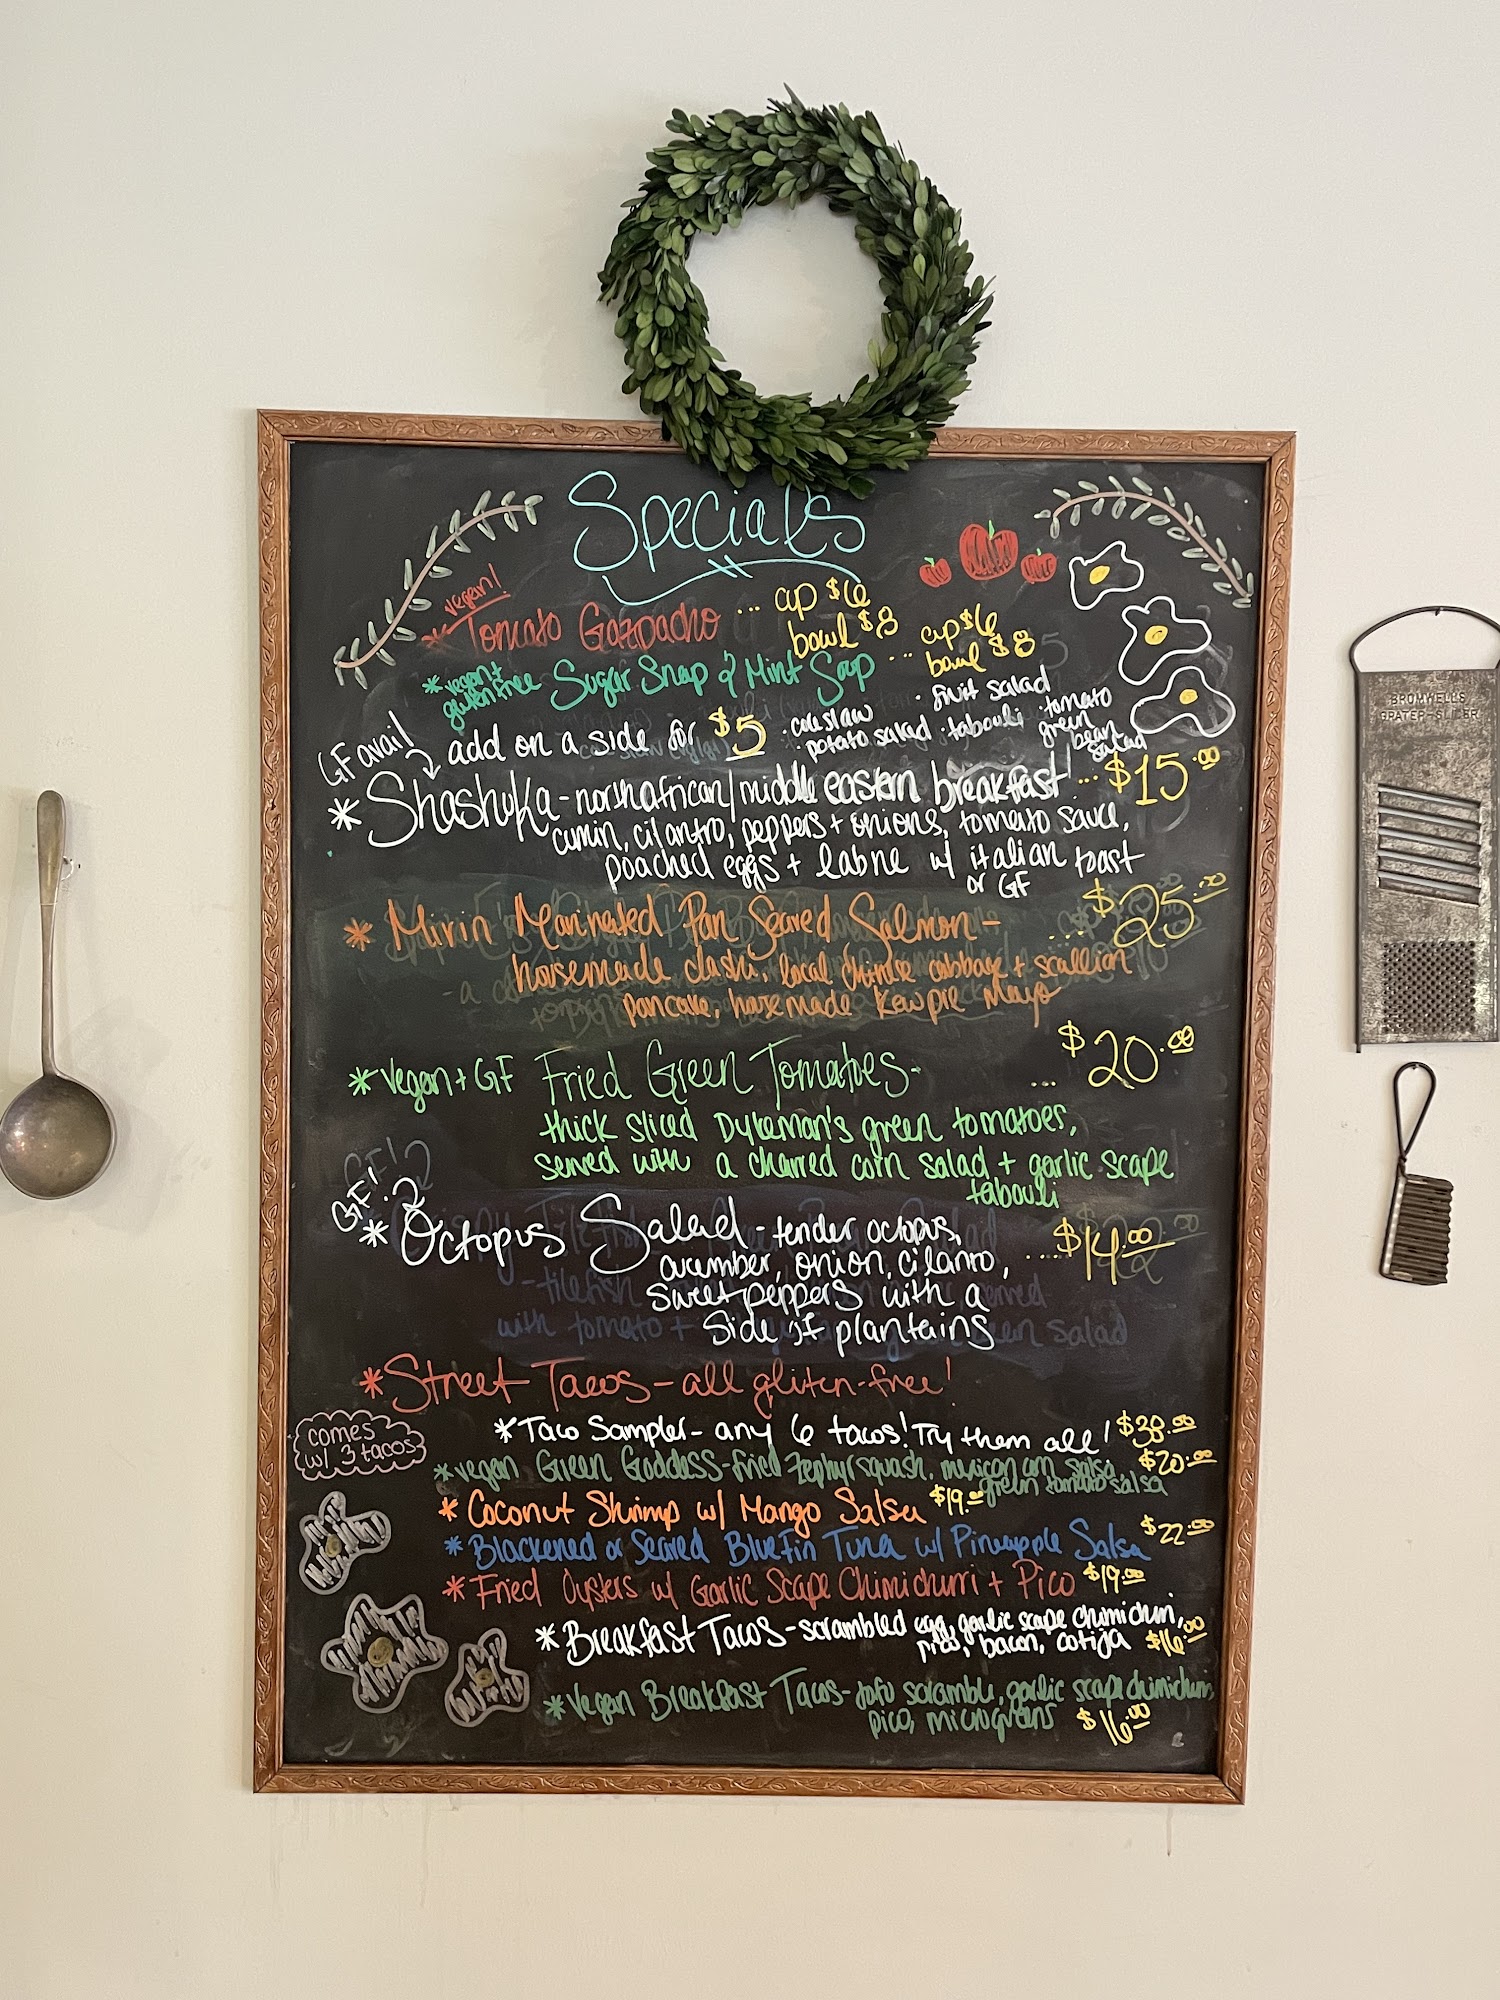 Specials
vegan!
* Tomato Gazpacho ... cup $6
bowl $8
* vegan + gluten free Sugar Snap & Mint Soup ... cup $6
bowl $8
GF avail
add on a side for $5 · coleslaw · fruit salad
· potato salad · tabouli · tomato green bean salad
* Shashuka - north african/middle eastern breakfast! ... $15.00
cumin, cilantro, peppers + onions, tomato sauce,
poached eggs + labne w/ italian toast
or GF
* Mirin Marinated Pan Seared Salmon - ... $25.00
housemade dashi, local chinese cabbage + scallion
pancake, housemade Kewpie Mayo
* Vegan + GF Fried Green Tomatoes - ... $20.00
thick sliced Dykeman's green tomatoes,
served with a charred corn salad + garlic scape
tabouli
GF!
* Octopus Salad - tender octopus, ... $14.00
cucumber, onion, cilantro,
sweet peppers with a
side of plantains
* Street Tacos - all gluten-free!
comes
w/ 3 tacos
* Taco Sampler - any 6 tacos! Try them all! $38.00
* vegan Green Goddess - fried zephyr squash, mexican corn salsa, $20.00
green tomato salsa
* Coconut Shrimp w/ Mango Salsa $19.00
* Blackened or Seared Bluefin Tuna w/ Pineapple Salsa $22.00
* Fried Oysters w/ Garlic Scape Chimichurri + Pico $19.00
* Breakfast Tacos - scrambled egg, garlic scape chimichurri,
pico, bacon, cotija $16.00
* Vegan Breakfast Tacos - tofu scramble, garlic scape chimichurri,
pico, microgreens $16.00
BROMWELL'S
GRATER-SLICER